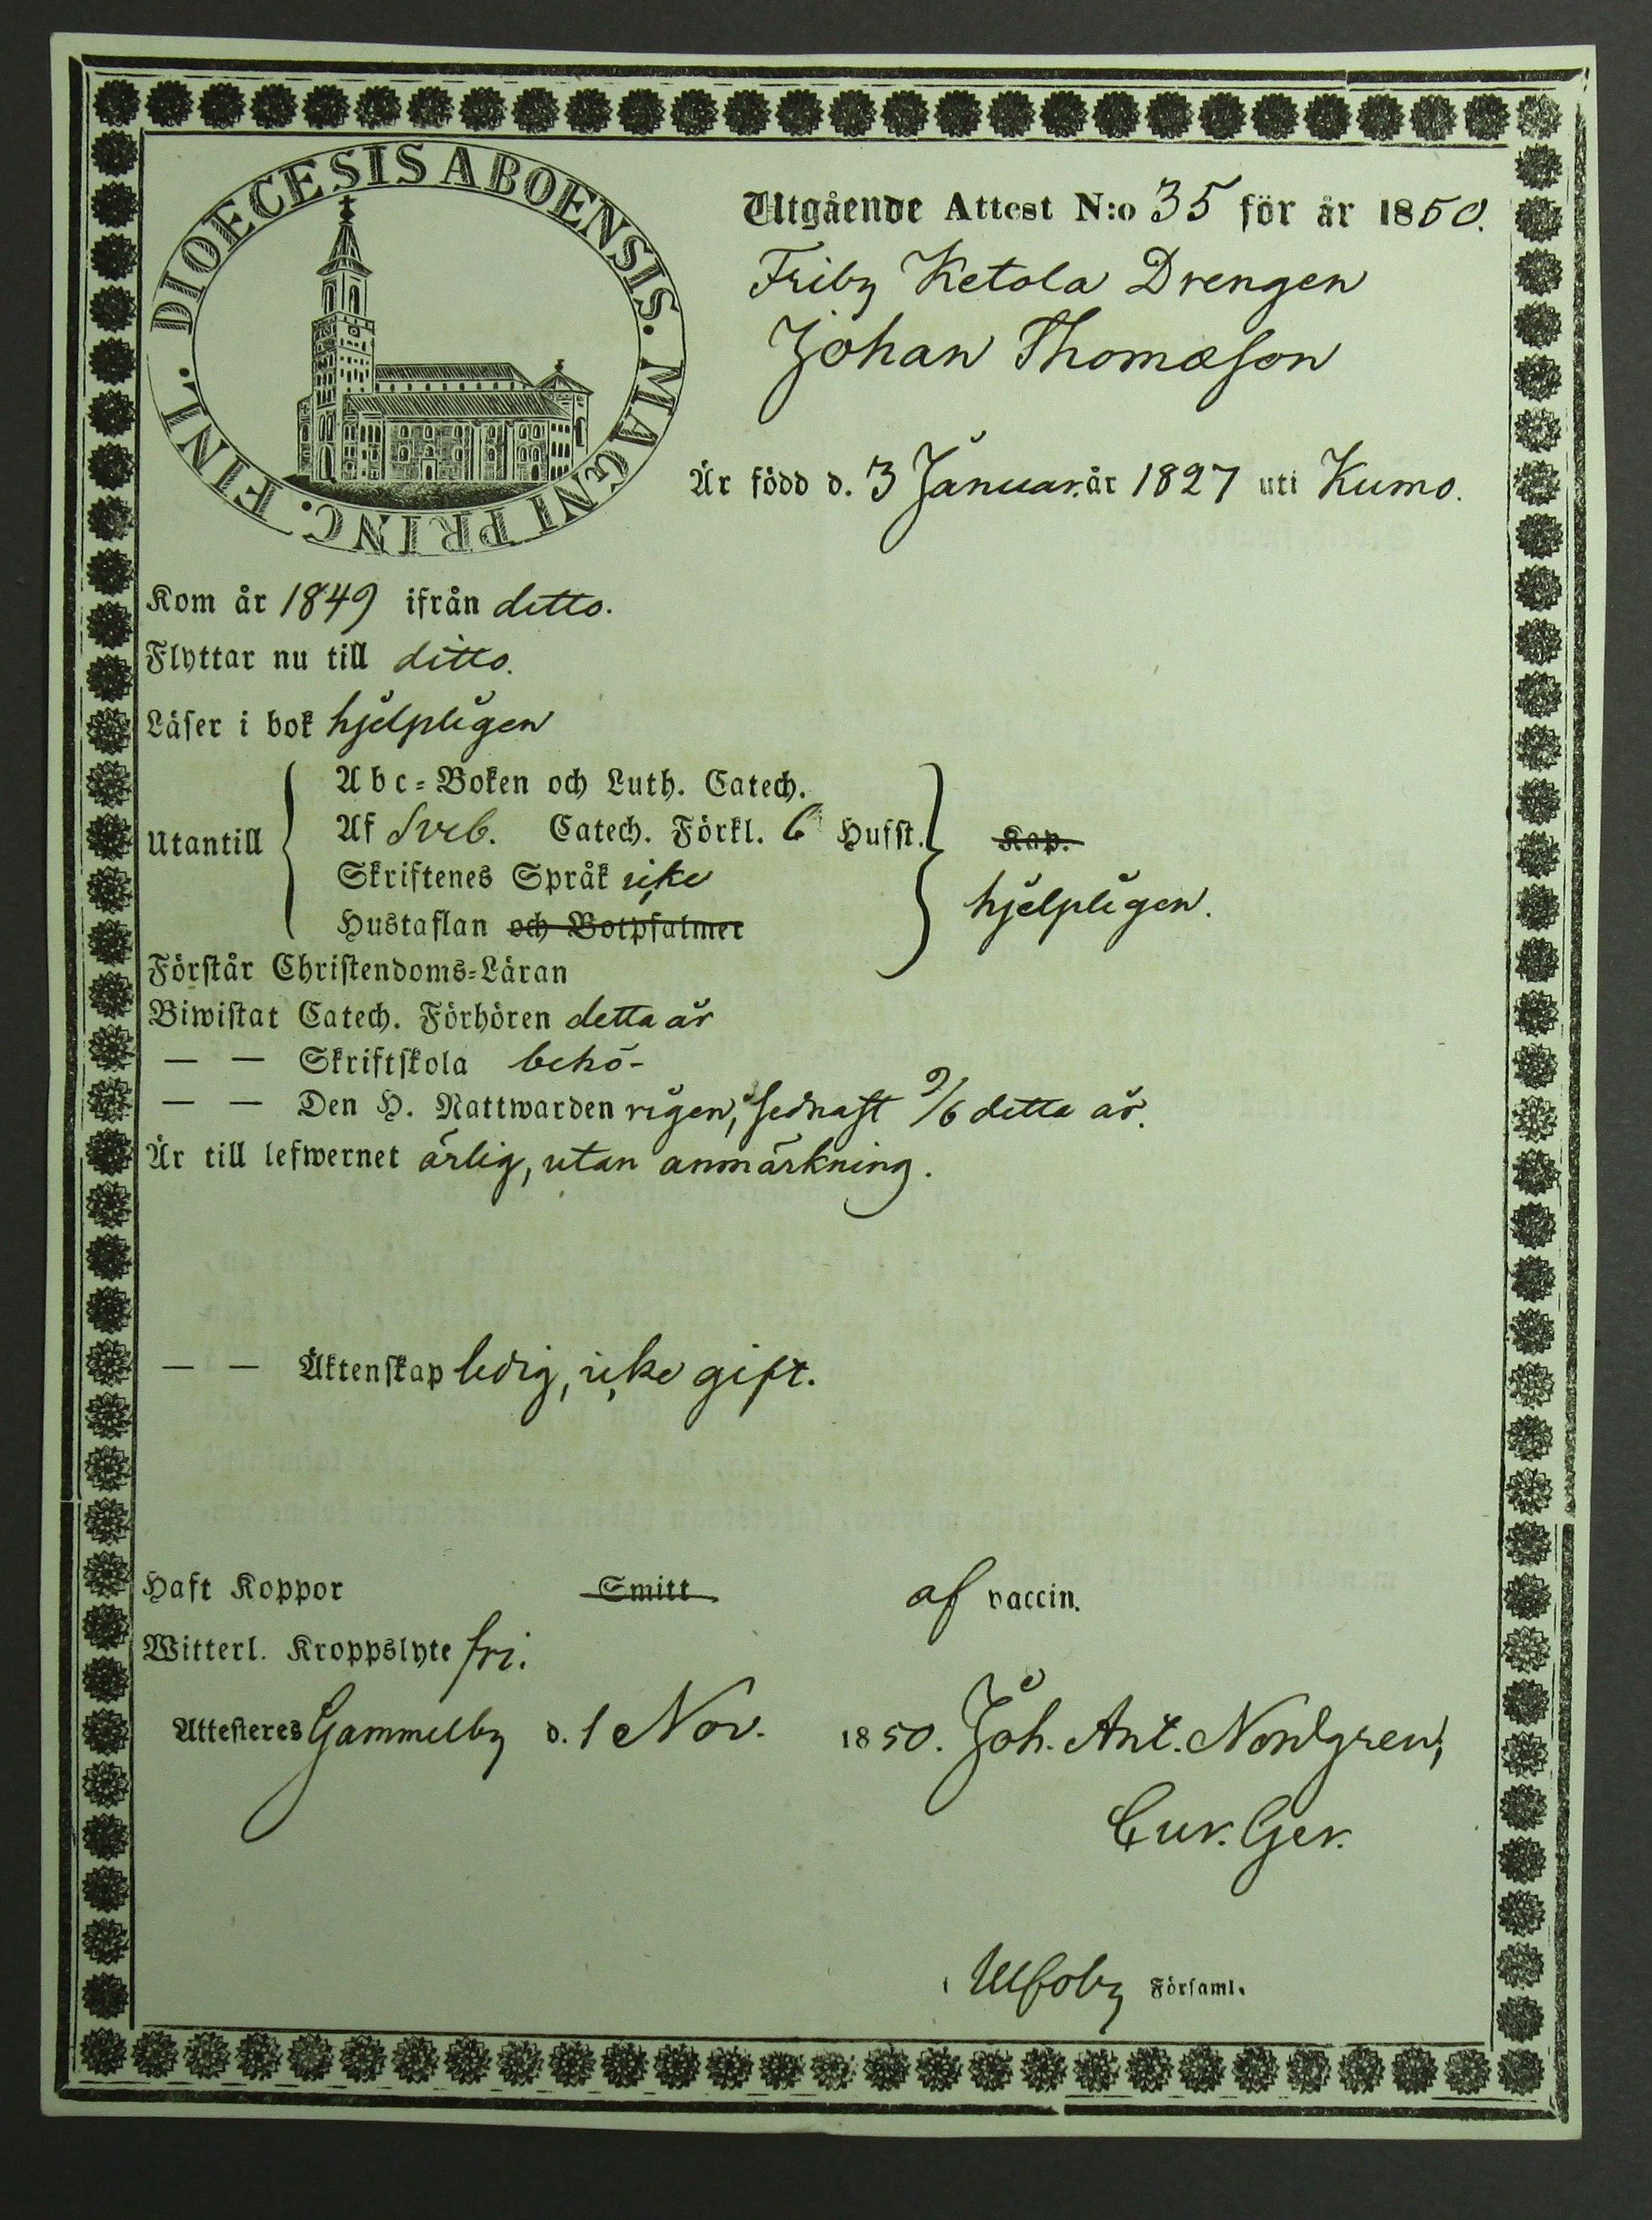 DIOECESIS ABOENSIS. MAGNI PRINC. FINL.
Utgående Attest N:o 35 för år 1850.
Friby Ketola Drengen
Johan Thomæson
Är född d. 3 Januar. år 1827 uti Kumo.
Kom år 1849 ifrån ditto.
Flyttar nu till ditto.
Läser i bok hjelpligen
Abc-Boken och Luth. Catech.
Utantill Af Sveb. Catech. Förkl. 6 Hufst. Kap.
Skriftenes Språk icke
hjelpligen.
Hustaflan och Botpsalmer
Förstår Christendoms-Läran
Biwistat Catech. Förhören detta år
— — Skriftskola behö-
— — Den H. Nattwarden rigen, sednast 9/6 detta år.
Är till lefwernet ärlig, utan anmärkning.
— — Äktenskap ledig, icke gift.
Haft Koppor Smitt af vaccin.
Witterl. Kroppslyte fri.
Attesteres Gammelby d. 1 Nov. 1850. Joh. Ant. Nordgren,
Cur. Ger.
i Ulfsby Församl.